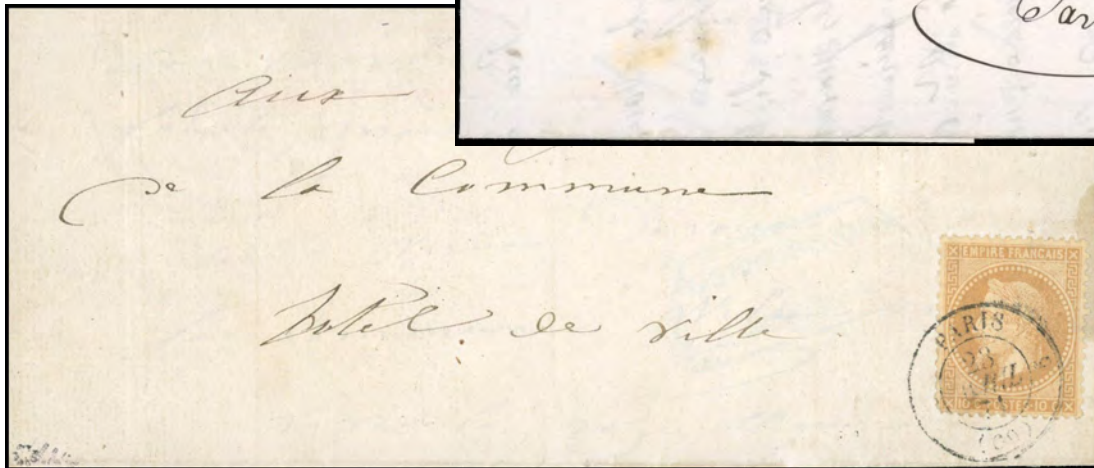 Par
Aux
de la Commune
hotel de ville
EMPIRE FRANÇAIS
PARIS
(60)